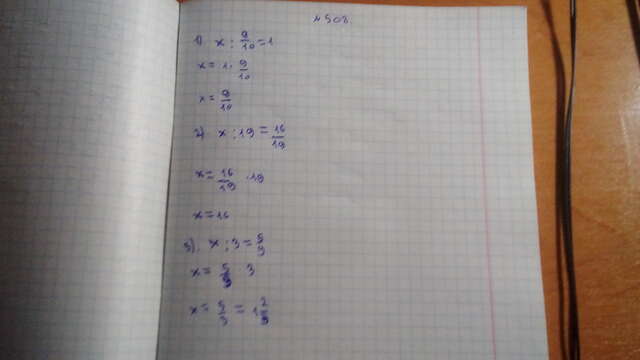 № 508.
1) x : 9/10 = 1
x = 1 · 9/10
x = 9/10
2) x : 19 = 16/19
x = 16/19 · 19
x = 16
3) x : 3 = 5/3
x = 5/9 · 3
x = 5/3 = 1 2/3